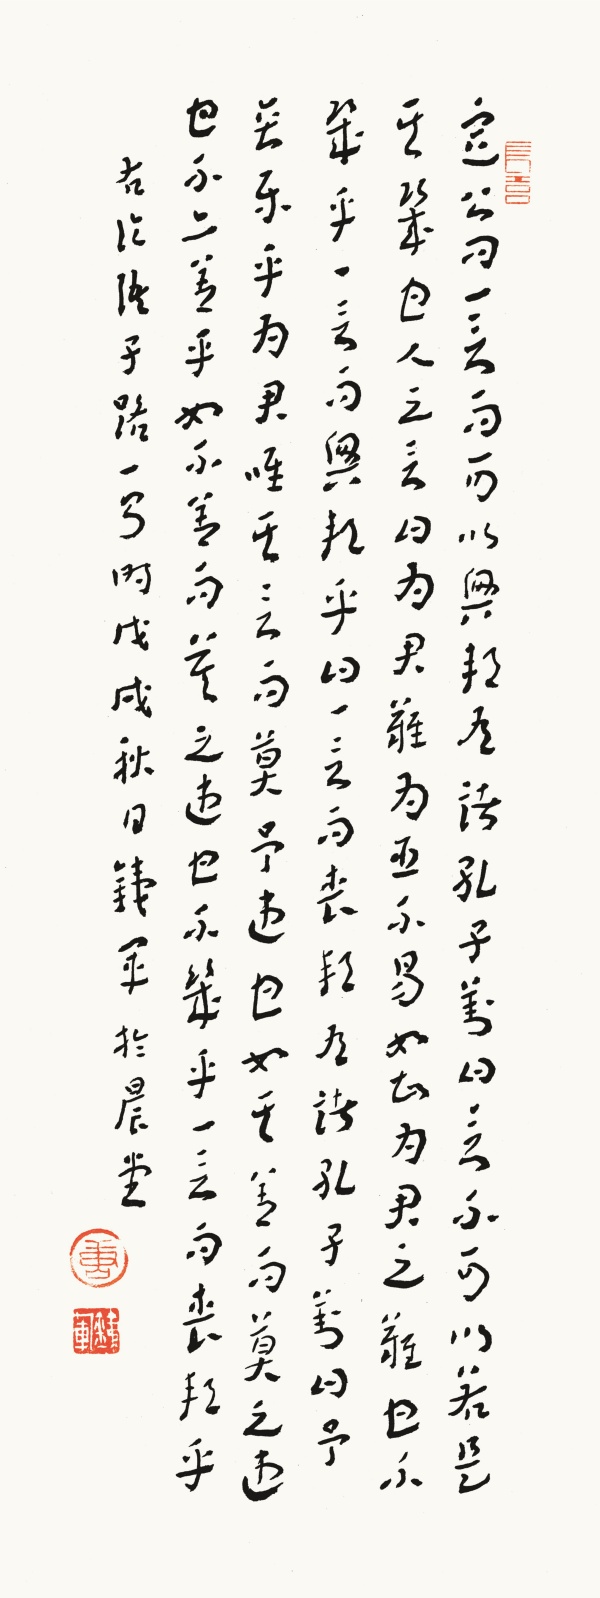 定公問一言而可以興邦有諸孔子對曰言不可以若是
其幾也人之言曰為君難為臣不易如知為君之難也不
幾乎一言而興邦乎曰一言而喪邦有諸孔子對曰予
無樂乎為君唯其言而莫予違也如其善而莫之違
也不亦善乎如不善而莫之違也不幾乎一言而喪邦乎
右論語子路一時戊戌秋日錢軍於晨堂
錢軍